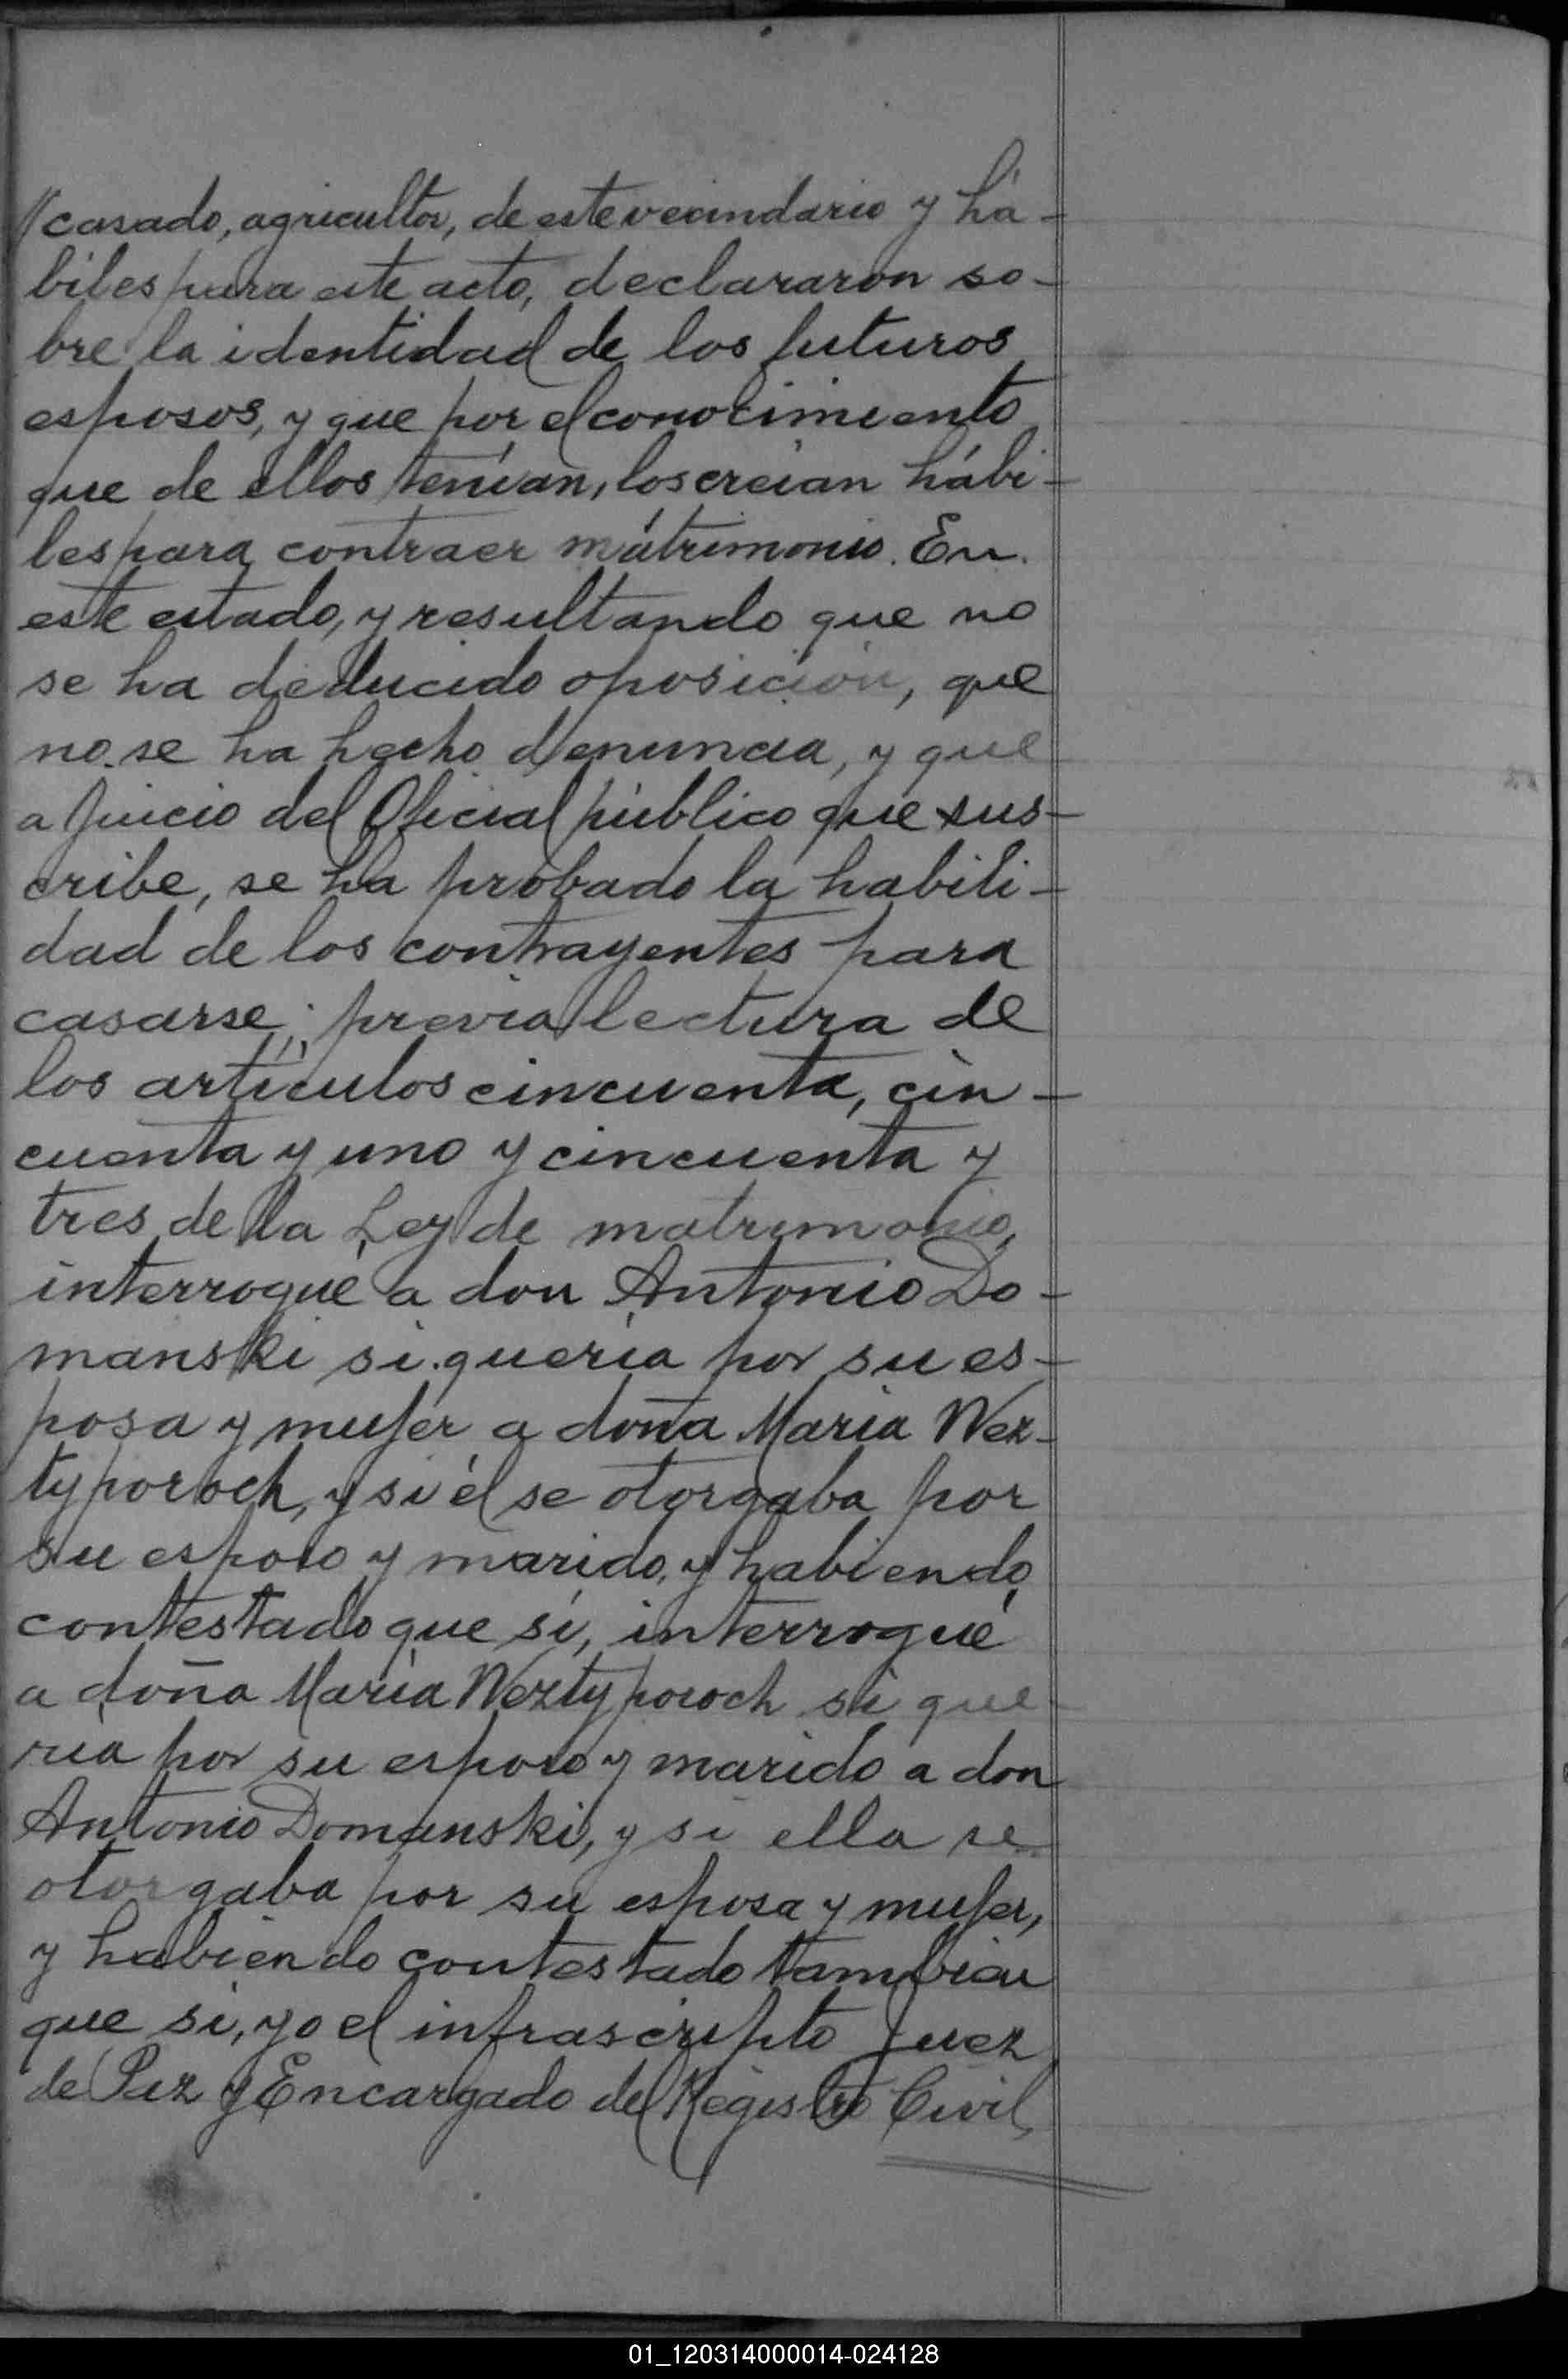 //casado, agricultor, de este vecindario y há-
biles para este acto, declararon so-
bre la identidad de los futuros
esposos, y que por el conocimiento
que de ellos tenían, los creían hábi-
les para contraer matrimonio. En
este estado, y resultando que no
se ha deducido oposición, que
no se ha hecho denuncia, y que
a juicio del Oficial público que sus-
cribe, se ha probado la habili-
dad de los contrayentes para
casarse; previa lectura de
los artículos cincuenta, cin-
cuenta y uno y cincuenta y
tres de la Ley de matrimonio,
interrogué a don Antonio Do-
manski si quería por su es-
posa y mujer a doña María Wez-
typoroch, y si él se otorgaba por
su esposo y marido, y habiendo
contestado que sí, interrogué
a doña María Weztyporoch si que-
ría por su esposo y marido a don
Antonio Domanski, y si ella se
otorgaba por su esposa y mujer,
y habiendo contestado tambien
que sí, yo el infrascripto Juez
de Paz y Encargado del Registro Civil,
01_120314000014-024128